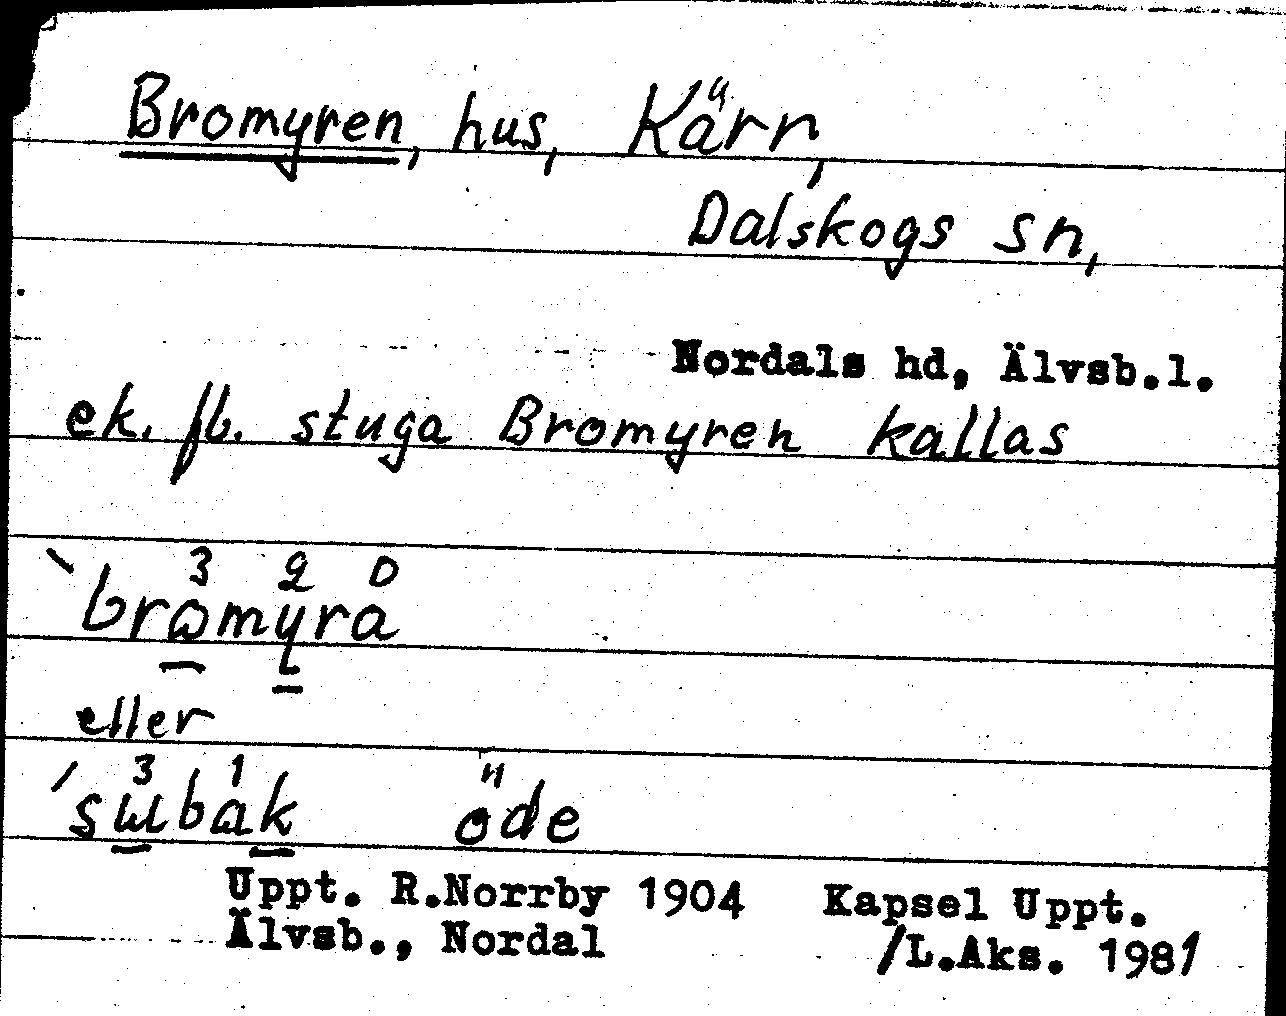 Bromyren, hus, Kärr,
Dalskogs sn,
Nordals hd, Älvsb.l.
ek. fb. stuga Bromyren kallas
3 2 0
`bromyra
eller
3 1
´subak öde
Uppt. R.Norrby 1904 Kapsel Uppt.
Älvsb., Nordal /L.Aks. 1981